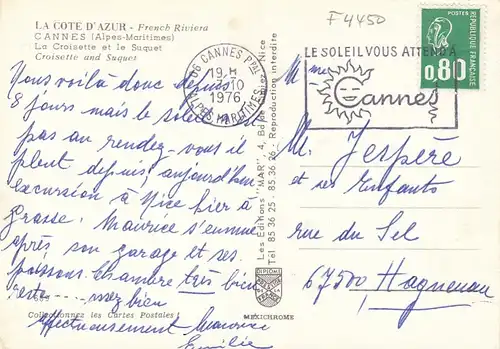 LA COTE D'AZUR - French Riviera
CANNES (Alpes-Maritimes)
La Croisette et le Suquet
Croisette and Suquet
Nous voilà donc depuis
8 jours mais le soleil
pas au rendez-vous il
pleut depuis aujourd'hui
excursion à Nice hier à
Grasse. Maurice s'ennuie
après son garage et ses
poissons. Chambre très bien
resto ssez bien
Affectueusement Maurice
Emilie
Collectionnez les Cartes Postales !
Les Editions "MAR" 4, Nice
Tél 85 36 25 - 85 36 26 - Reproduction interdite
DIPLOME
FRANCE
MEXICHROME
F 4450
06 CANNES PPAL
19 H
7-10
1976
ALPES MARITIMES
LE SOLEIL VOUS ATTEND A
Cannes
POSTES
0,80
REPUBLIQUE FRANCAISE
Mme
M. Jespère
et ses Enfants
rue du Sel
67500 Haguenau